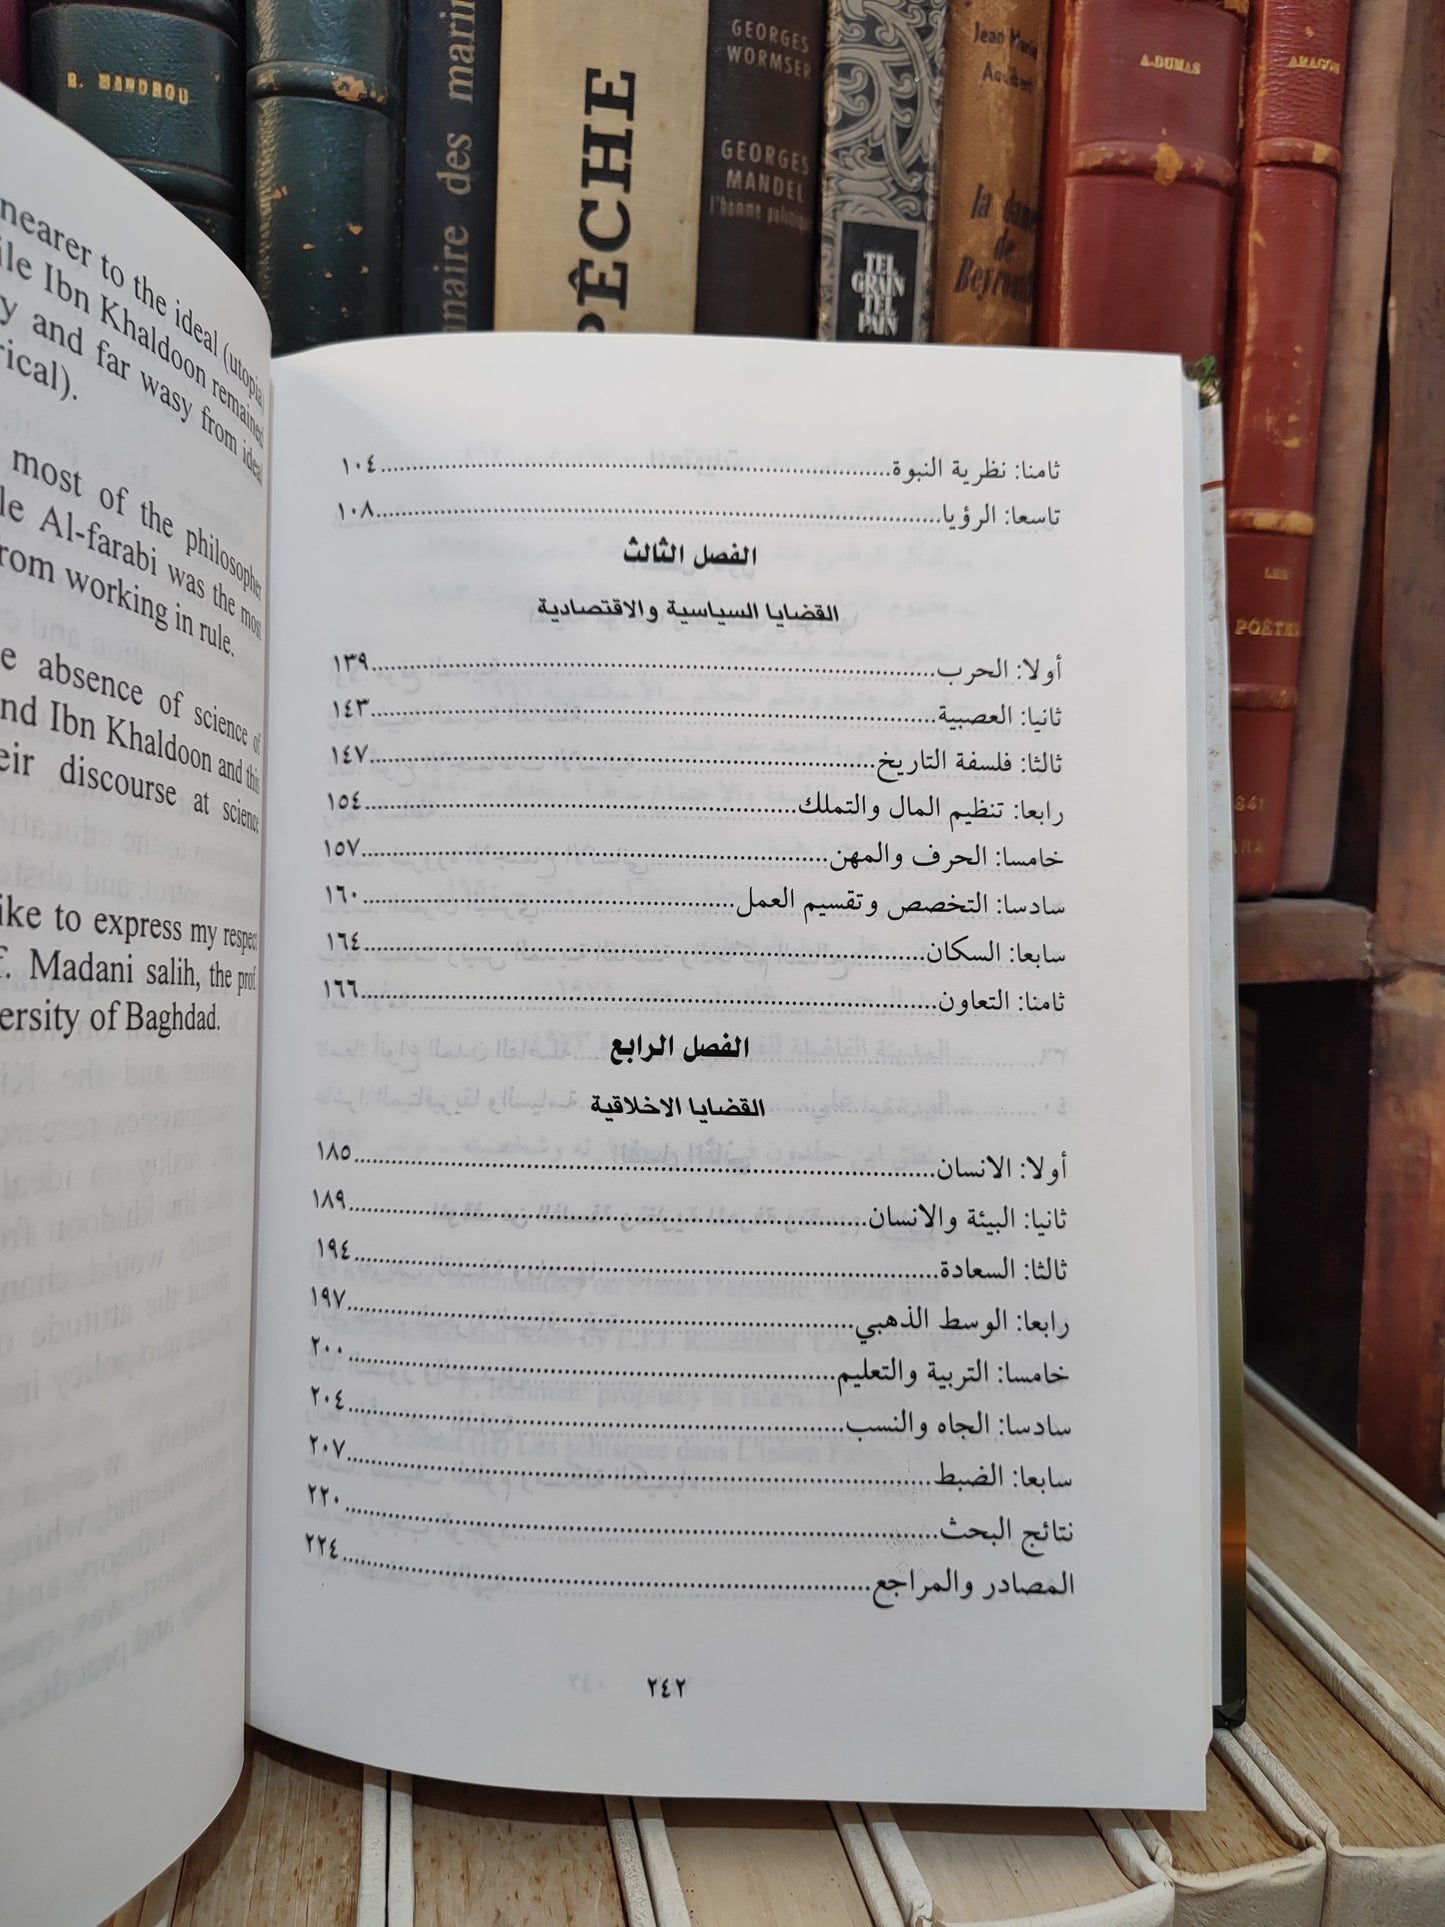 R. MANDROU
naire des marin
PÊCHE
GEORGES
WORMSER
GEORGES
MANDEL
l'homme politique
TEL
GRAIN
TEL
PAIN
Jean Maria
la
de
Beyrouth
A.DUMAS
ARAGON
LES
POÈTES
nearer to the ideal (utopia)
ile Ibn Khaldoon remained
y and far wasy from ideal
rical).
most of the philosopher
le Al-farabi was the most
rom working in rule.
e absence of science of
nd Ibn Khaldoon and this
eir discourse at science
ike to express my respect
f. Madani salih, the prof.
ersity of Baghdad.
ثامنا: نظرية النبوة ١٠٤
تاسعا: الرؤيا ١٠٨
الفصل الثالث
القضايا السياسية والاقتصادية
أولا: الحرب ١٣٩
ثانيا: العصبية ١٤٣
ثالثا: فلسفة التاريخ ١٤٧
رابعا: تنظيم المال والتملك ١٥٤
خامسا: الحرف والمهن ١٥٧
سادسا: التخصص وتقسيم العمل ١٦٠
سابعا: السكان ١٦٤
ثامنا: التعاون ١٦٦
الفصل الرابع
القضايا الاخلاقية
أولا: الانسان ١٨٥
ثانيا: البيئة والانسان ١٨٩
ثالثا: السعادة ١٩٤
رابعا: الوسط الذهبي ١٩٧
خامسا: التربية والتعليم ٢٠٠
سادسا: الجاه والنسب ٢٠٤
سابعا: الضبط ٢٠٧
نتائج البحث ٢٢٠
المصادر والمراجع ٢٢٤
٢٤٢